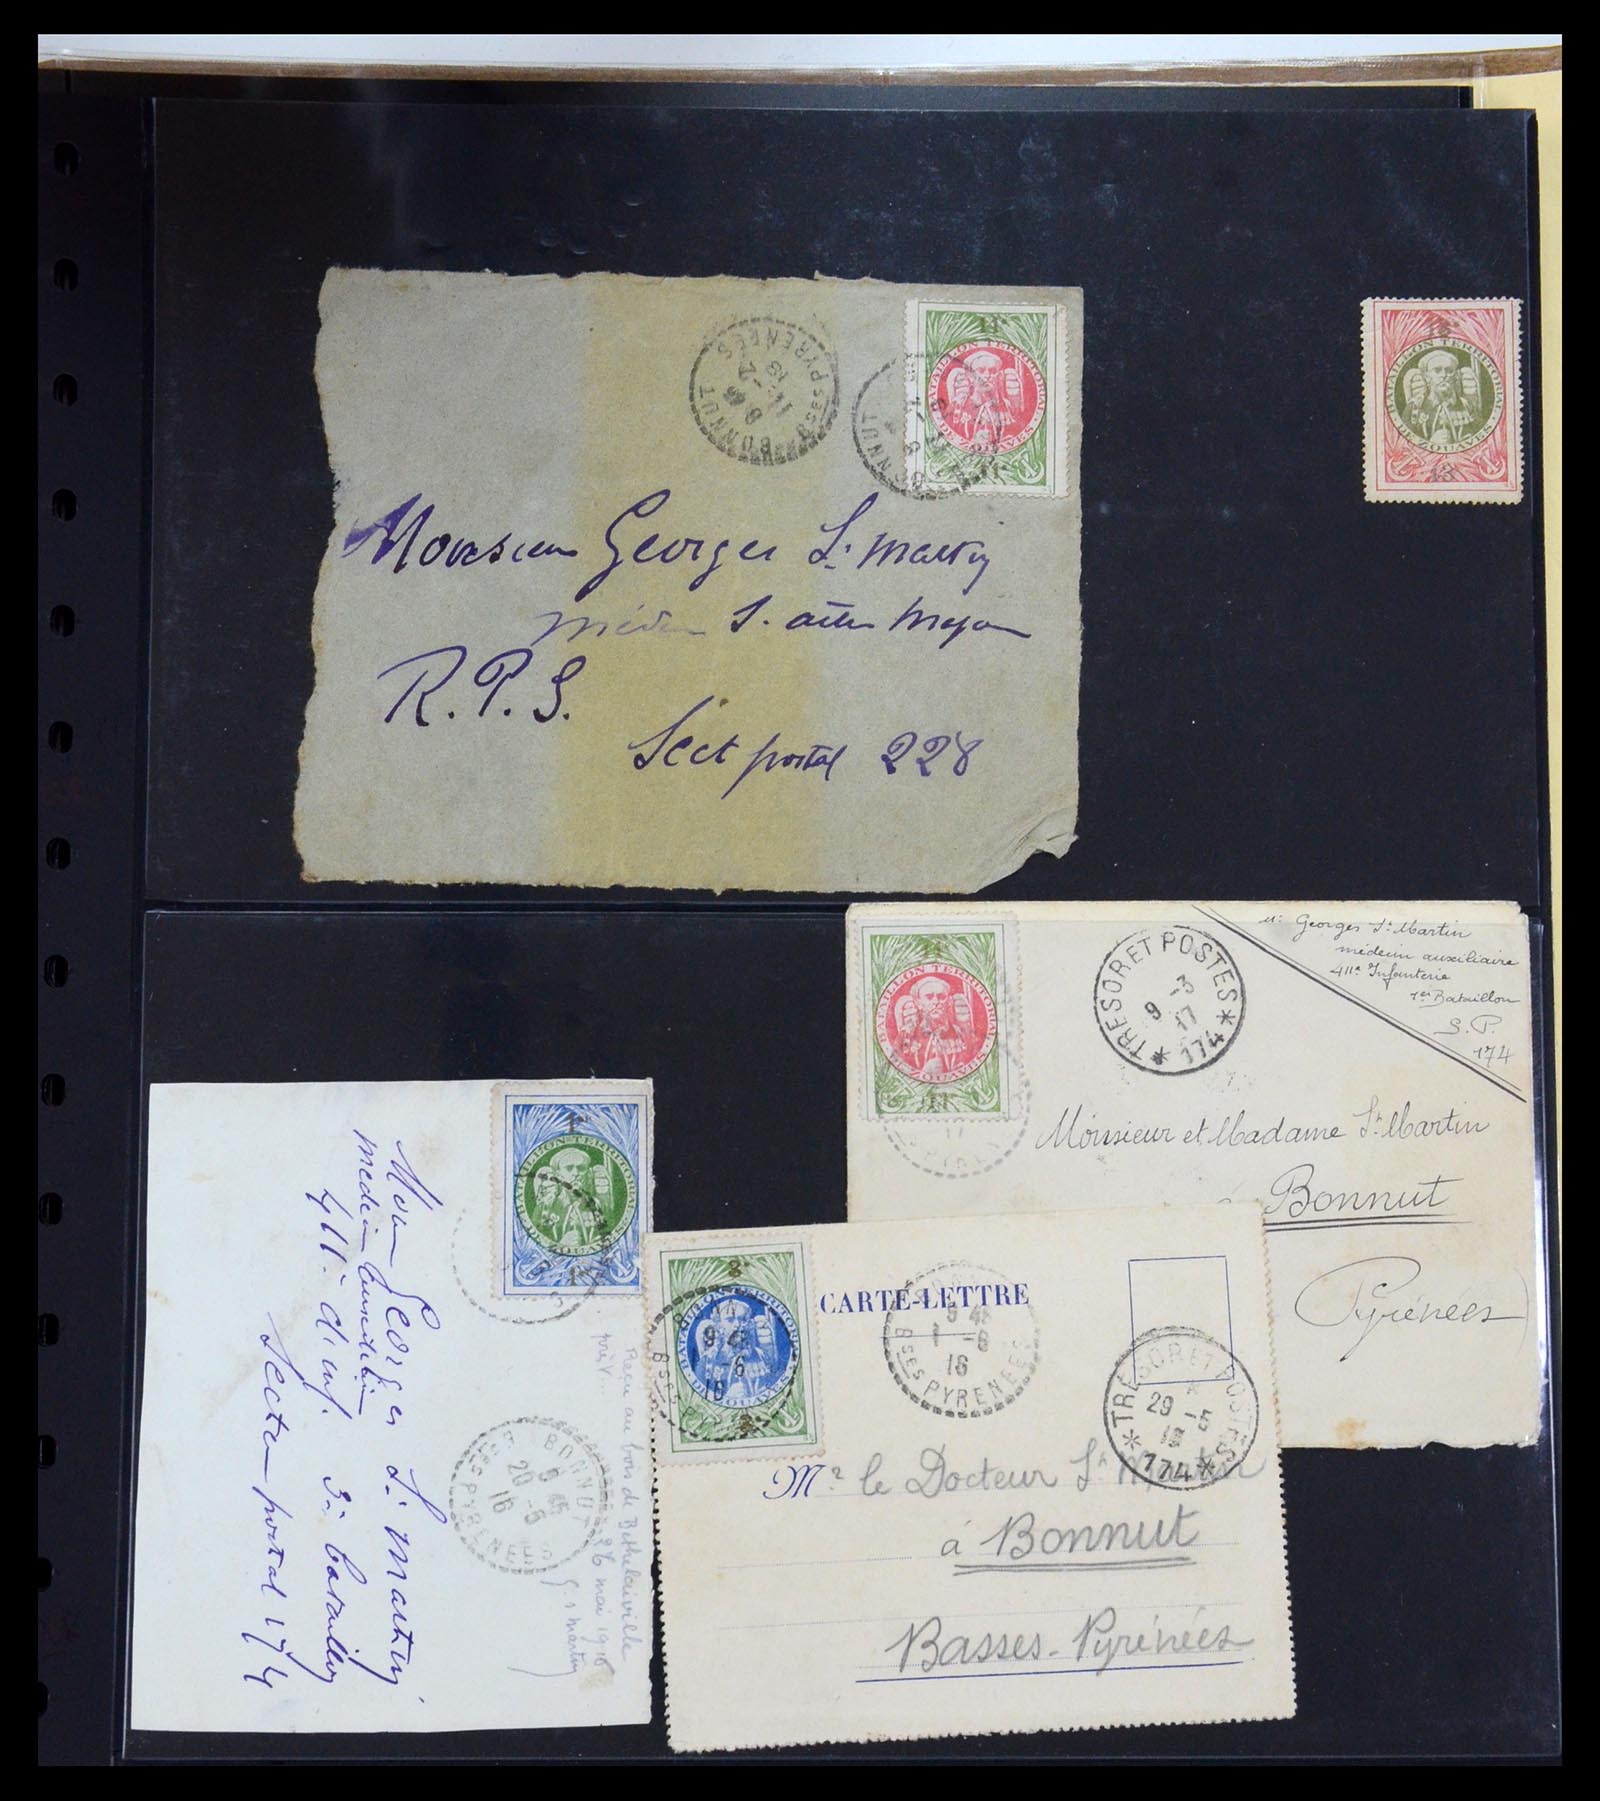 11e
BATAILLON TERRITORIAL
DE ZOUAVES
BONNUT
BSES PYRENEES
8 45
11 -2
16
BONNUT
Monsieur Georges St Martin
médecin s. aide Major
R.P.S.
Sect postal 228
13e
BATAILLON TERRITORIAL
DE ZOUAVES
13e
11e
BATAILLON TERRITORIAL
DE ZOUAVES
11e
PYRE
TRESOR ET POSTES
9 -3
17
* 174 *
Mr Georges St Martin
médecin auxiliaire
411e Infanterie
1er Bataillon
S.P.
174
Monsieur et Madame St Martin
à Bonnut
Pyrénées
1er
BATAILLON TERRITORIAL
DE ZOUAVES
1er
Mon Georges St Martin
médecin Auxiliaire
411e d'inf. 3e bataillon
Secteur postal 174
BONNUT
9 45
20 -5
16
BSES PYRENEES
Recu au bois de Bethelainville
26 mai 1916
G. St Martin
3e
BATAILLON TERRITORIAL
DE ZOUAVES
3e
9 45
-6
16
BSES PY
CARTE-LETTRE
9 45
1 -6
16
BSES PYRENEES
TRESOR ET POSTES
29 -5
16
* 174 *
Mr le Docteur St Martin
à Bonnut
Basses-Pyrénées